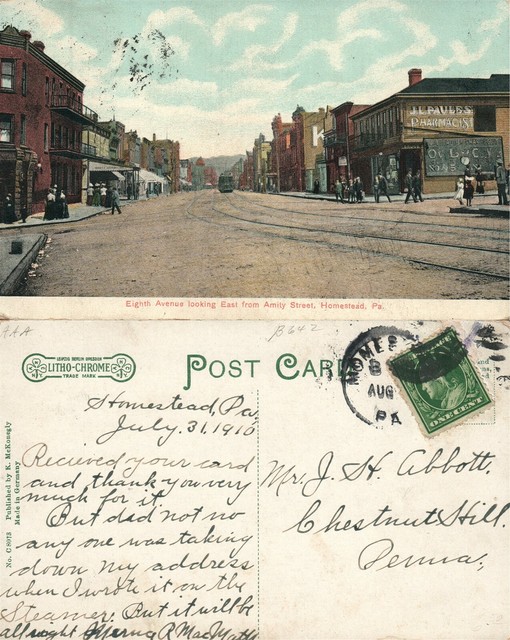 J.L. PAULES
PHARMACIST
Eighth Avenue looking East from Amity Street, Homestead, Pa.
AAA
B642
LEIPZIG BERLIN DRESDEN
LITHO-CHROME
TRADE MARK
POST CARD
HOMES
AUG
PA
ONE CENT
Homestead, Pa,
July. 31, 1910
Recieved your card
and thank you very
much for it
But did not no
any one was taking
down my address
when I wrote it on the
Steamer. But it will be
allright
Mr. J. H. Abbott.
Chestnut Hill.
Penna,
Published by K. McKonegly
Made in Germany
No. C8973